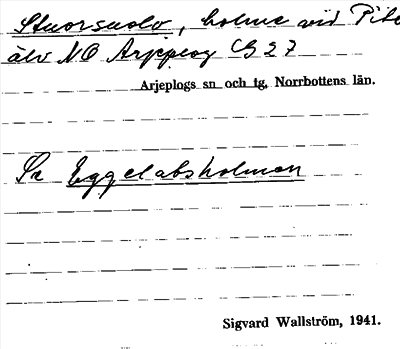 Stuorsuolo, holme vid Pite
älv NO Arjeplog CG 27
Arjeplogs sn och tg, Norrbottens län.
Se Eggelabsholmen
Sigvard Wallström, 1941.